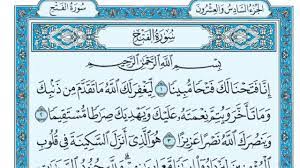 الجزء السادس والعشرون سورة الفتح
سورة الفتح
بسم الله الرحمن الرحيم
إنا فتحنا لك فتحا مبينا ١ ليغفر لك الله ما تقدم من ذنبك
وما تأخر ويتم نعمته عليك ويهديك صراطا مستقيما ٢
وينصرك الله نصرا عزيزا ٣ هو الذي أنزل السكينة في قلوب